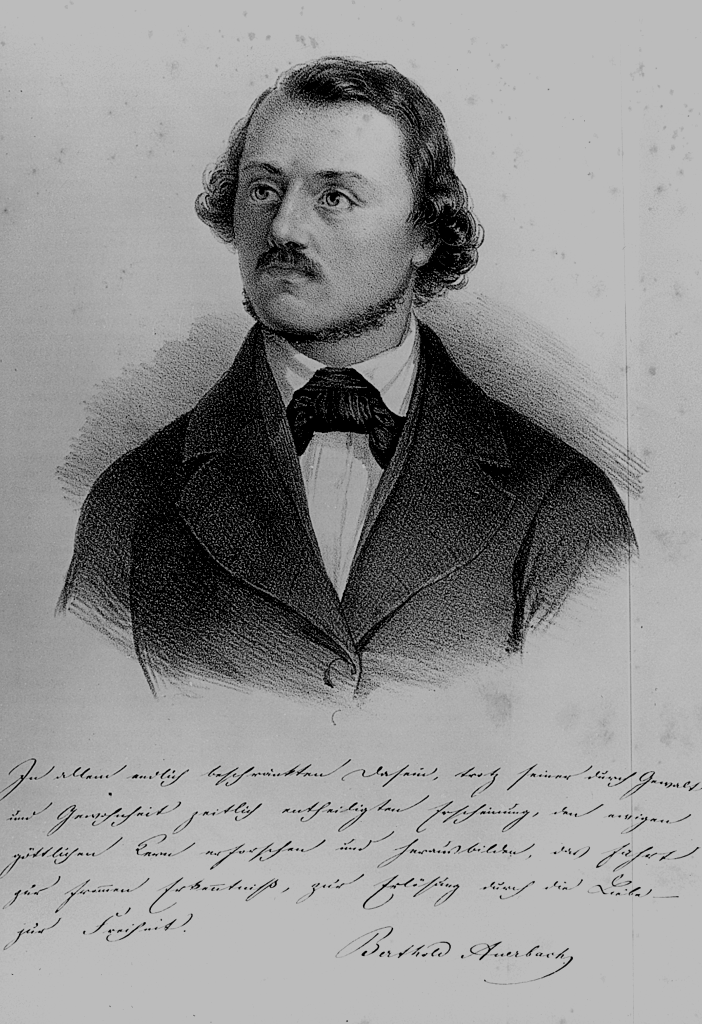 In allem endlich beschränkten Dasein, trotz seiner durch Gewalt
und Gewohnheit zeitlich entheiligten Erscheinung, den ewigen
göttlichen Kern erforschen und herausbilden, das führt
zur frommen Erkenntniß, zur Erlösung durch die Liebe —
zur Freiheit.
Berthold Auerbach